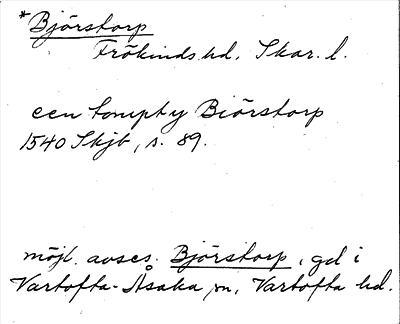 *Bjôrstorp
Frökinds hd. Skar. l.
een tompt y Biôrstorp
1540 Skjb, s. 89.
möjl. avses Bjôrstorp, gd i
Vartofta-Åsaka sn, Vartofta hd.